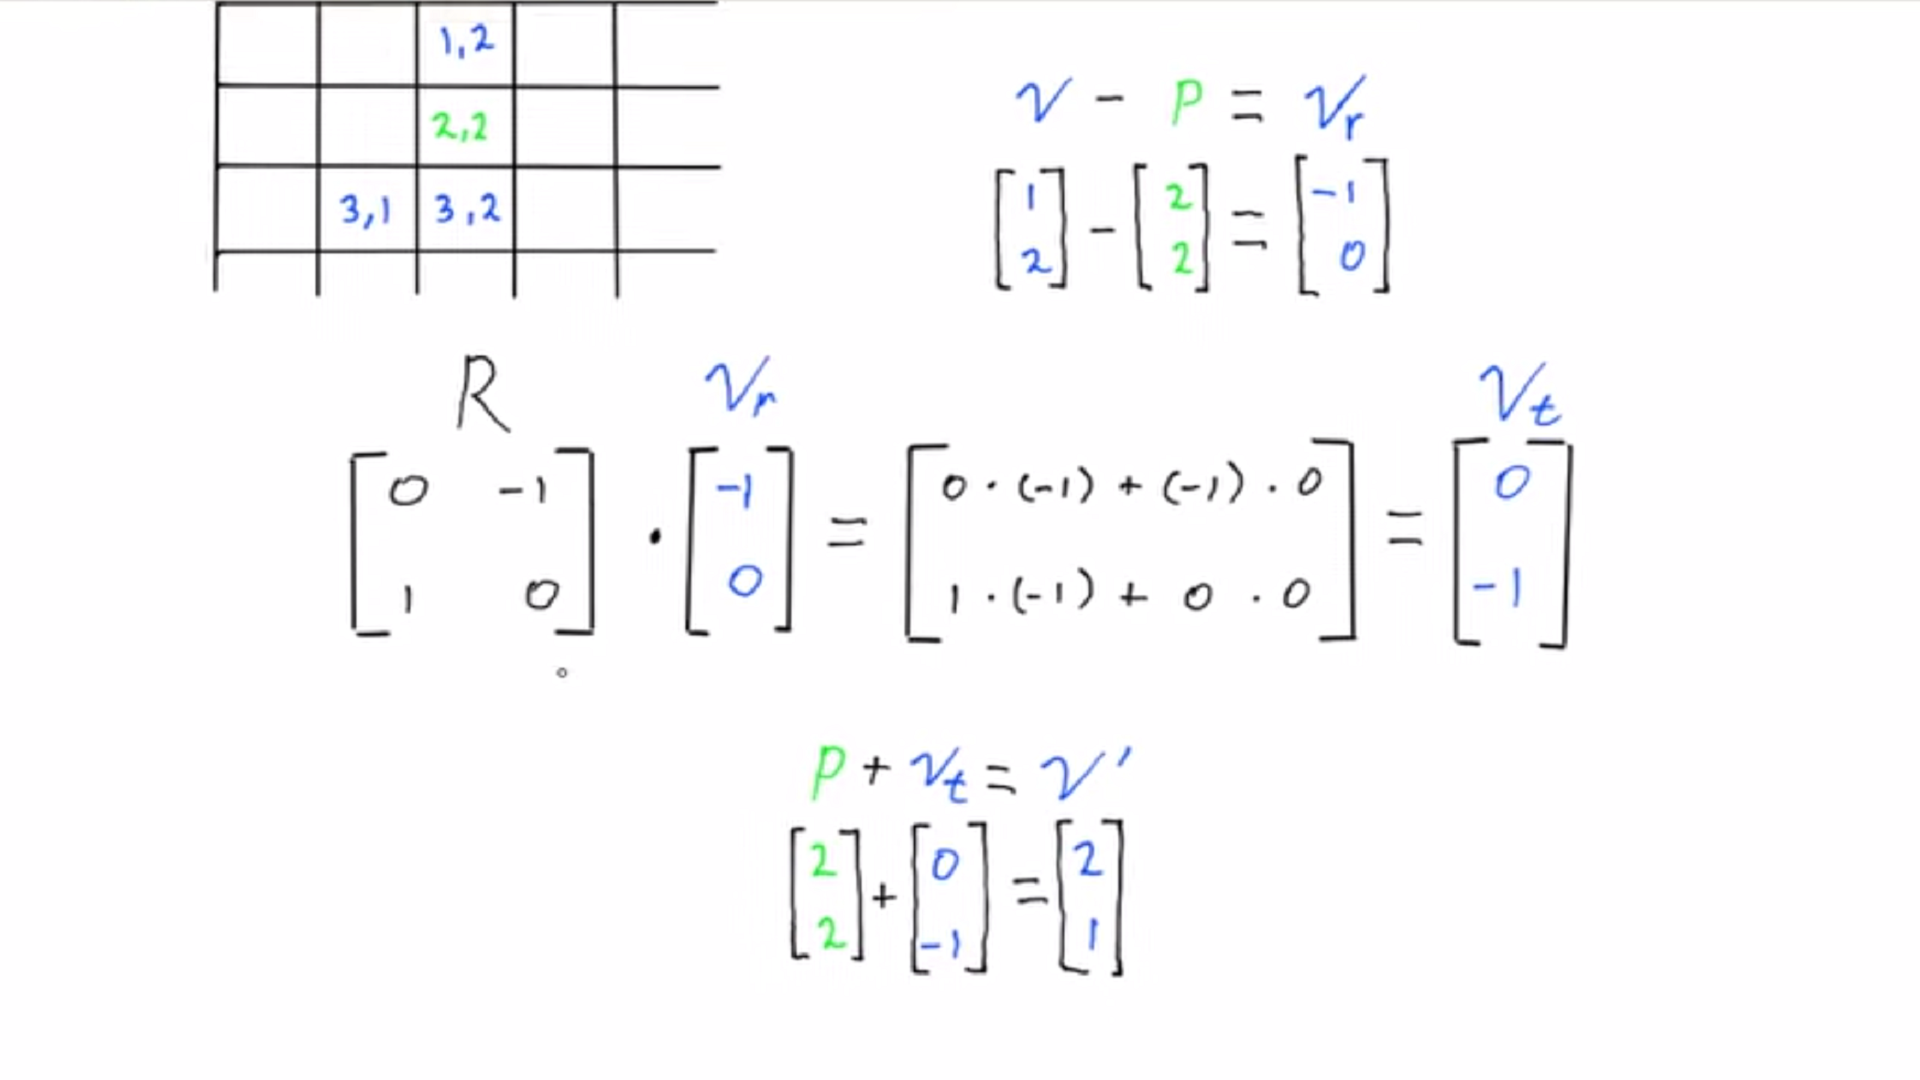 1,2
2,2
3,1 3,2
V - P = Vr
[1 2] - [2 2] = [-1 0]
R Vr Vt
[0 -1 1 0] · [-1 0] = [0 · (-1) + (-1) · 0 1 · (-1) + 0 · 0] = [0 -1]
P + Vt = V'
[2 2] + [0 -1] = [2 1]